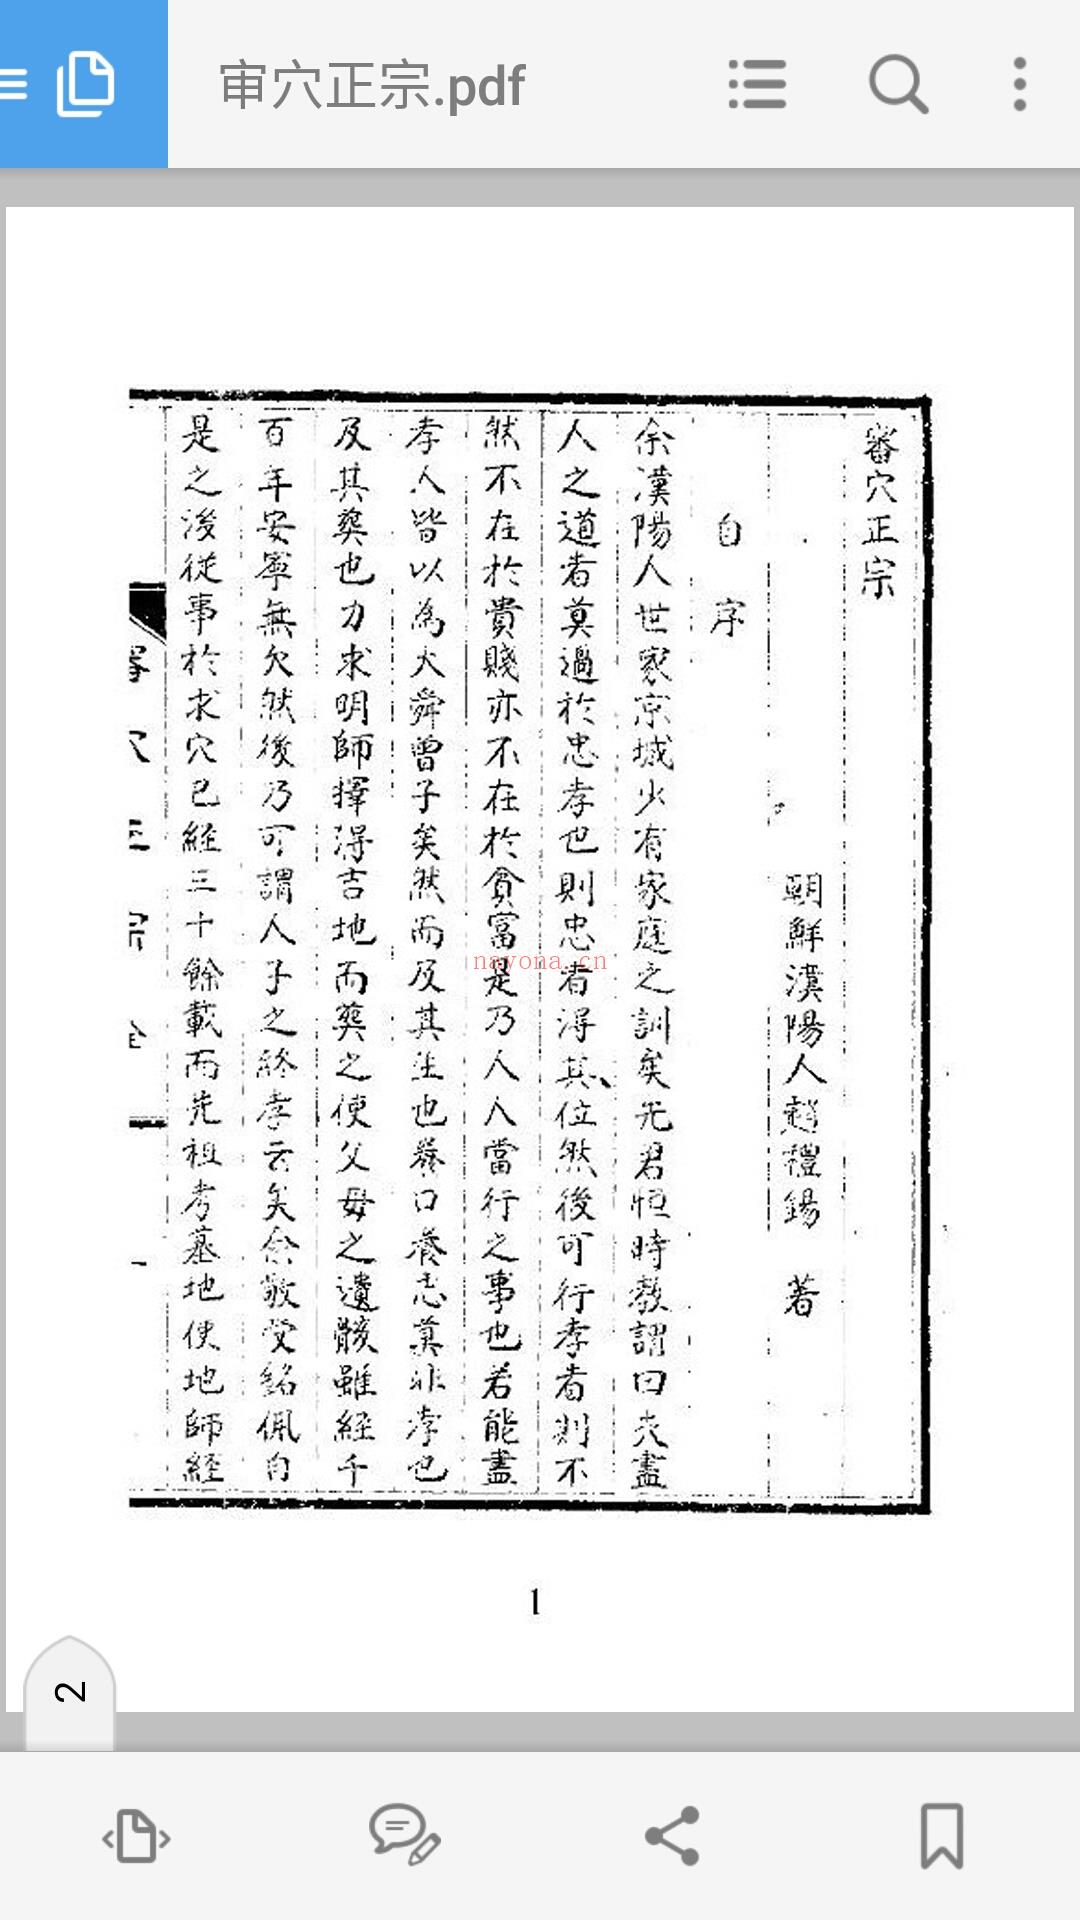 审穴正宗.pdf
審穴正宗
朝鮮漢陽人趙禮錫 著
自序
余漢陽人世家京城少有家庭之訓矣先君恒時教謂曰夫盡
人之道者莫過於忠孝也則忠者得其位然後可行孝者則不
然不在於貴賤亦不在於貧富是乃人人當行之事也若能盡
孝人皆以為大舜曾子矣然而及其生也養口養志莫非孝也
及其葬也力求明師擇得吉地而葬之使父母之遺骸雖經千
百年安寧無欠然後乃可謂人子之終孝云矣余敬受銘佩自
是之後從事於求穴已經三十餘載而先祖考墓地使地師經
審穴正宗 全 一
nayona.cn
1
2